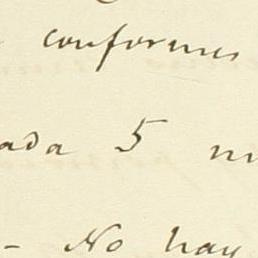 conformes
ada 5 m
- No hay